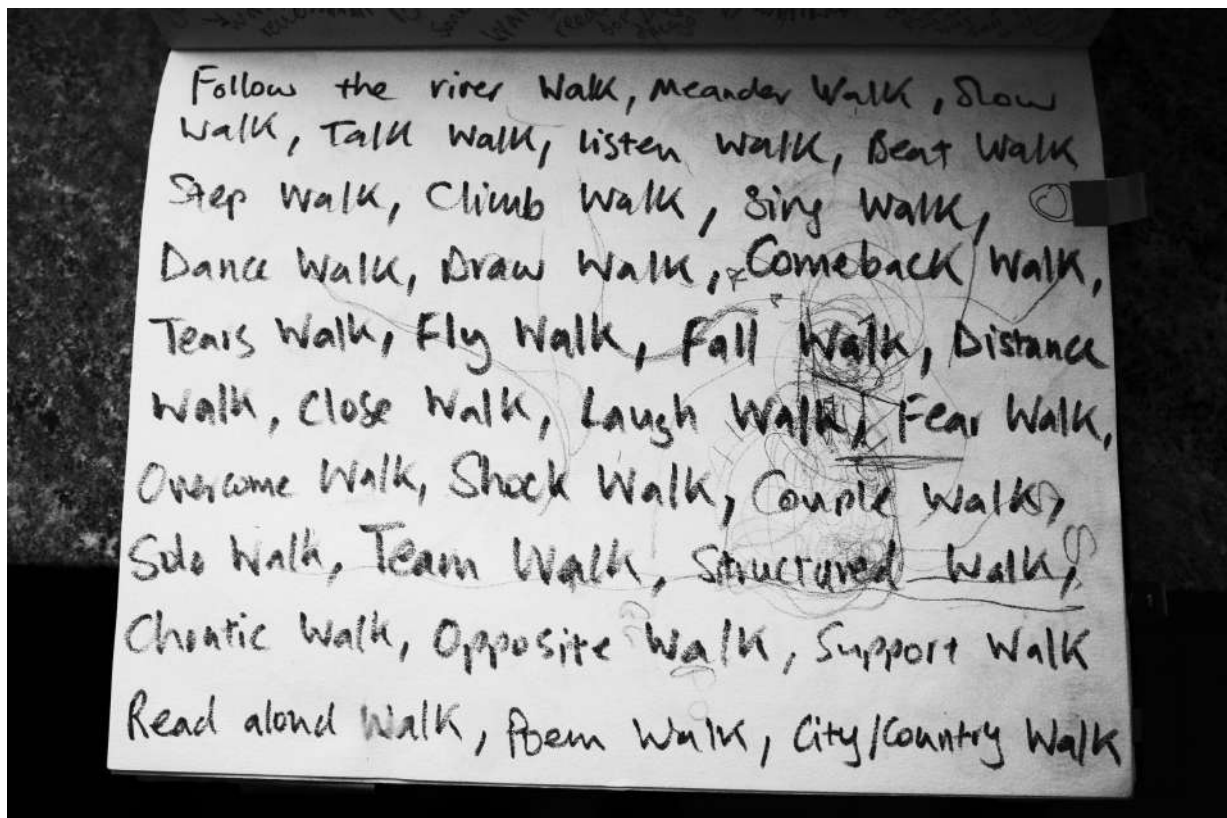 Follow the river Walk, Meander Walk, Slow
Walk, Talk Walk, listen Walk, Beat Walk
Step Walk, Climb Walk, Sing Walk,
Dance Walk, Draw Walk, Comeback Walk,
Tears Walk, Fly Walk, Fall Walk, Distance
Walk, Close Walk, Laugh Walk, Fear Walk,
Overcome Walk, Shock Walk, Couple Walk,
Solo Walk, Team Walk, Structured Walk,
Choatic Walk, Opposite Walk, Support Walk
Read aloud Walk, Poem Walk, City/Country Walk